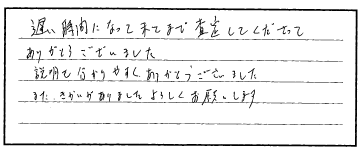 遅い時間になって来てまで査定してくださって
ありがとうございました
説明も分かりやすく ありがとうございました
また、きかいがありましたらよろしくお願いします